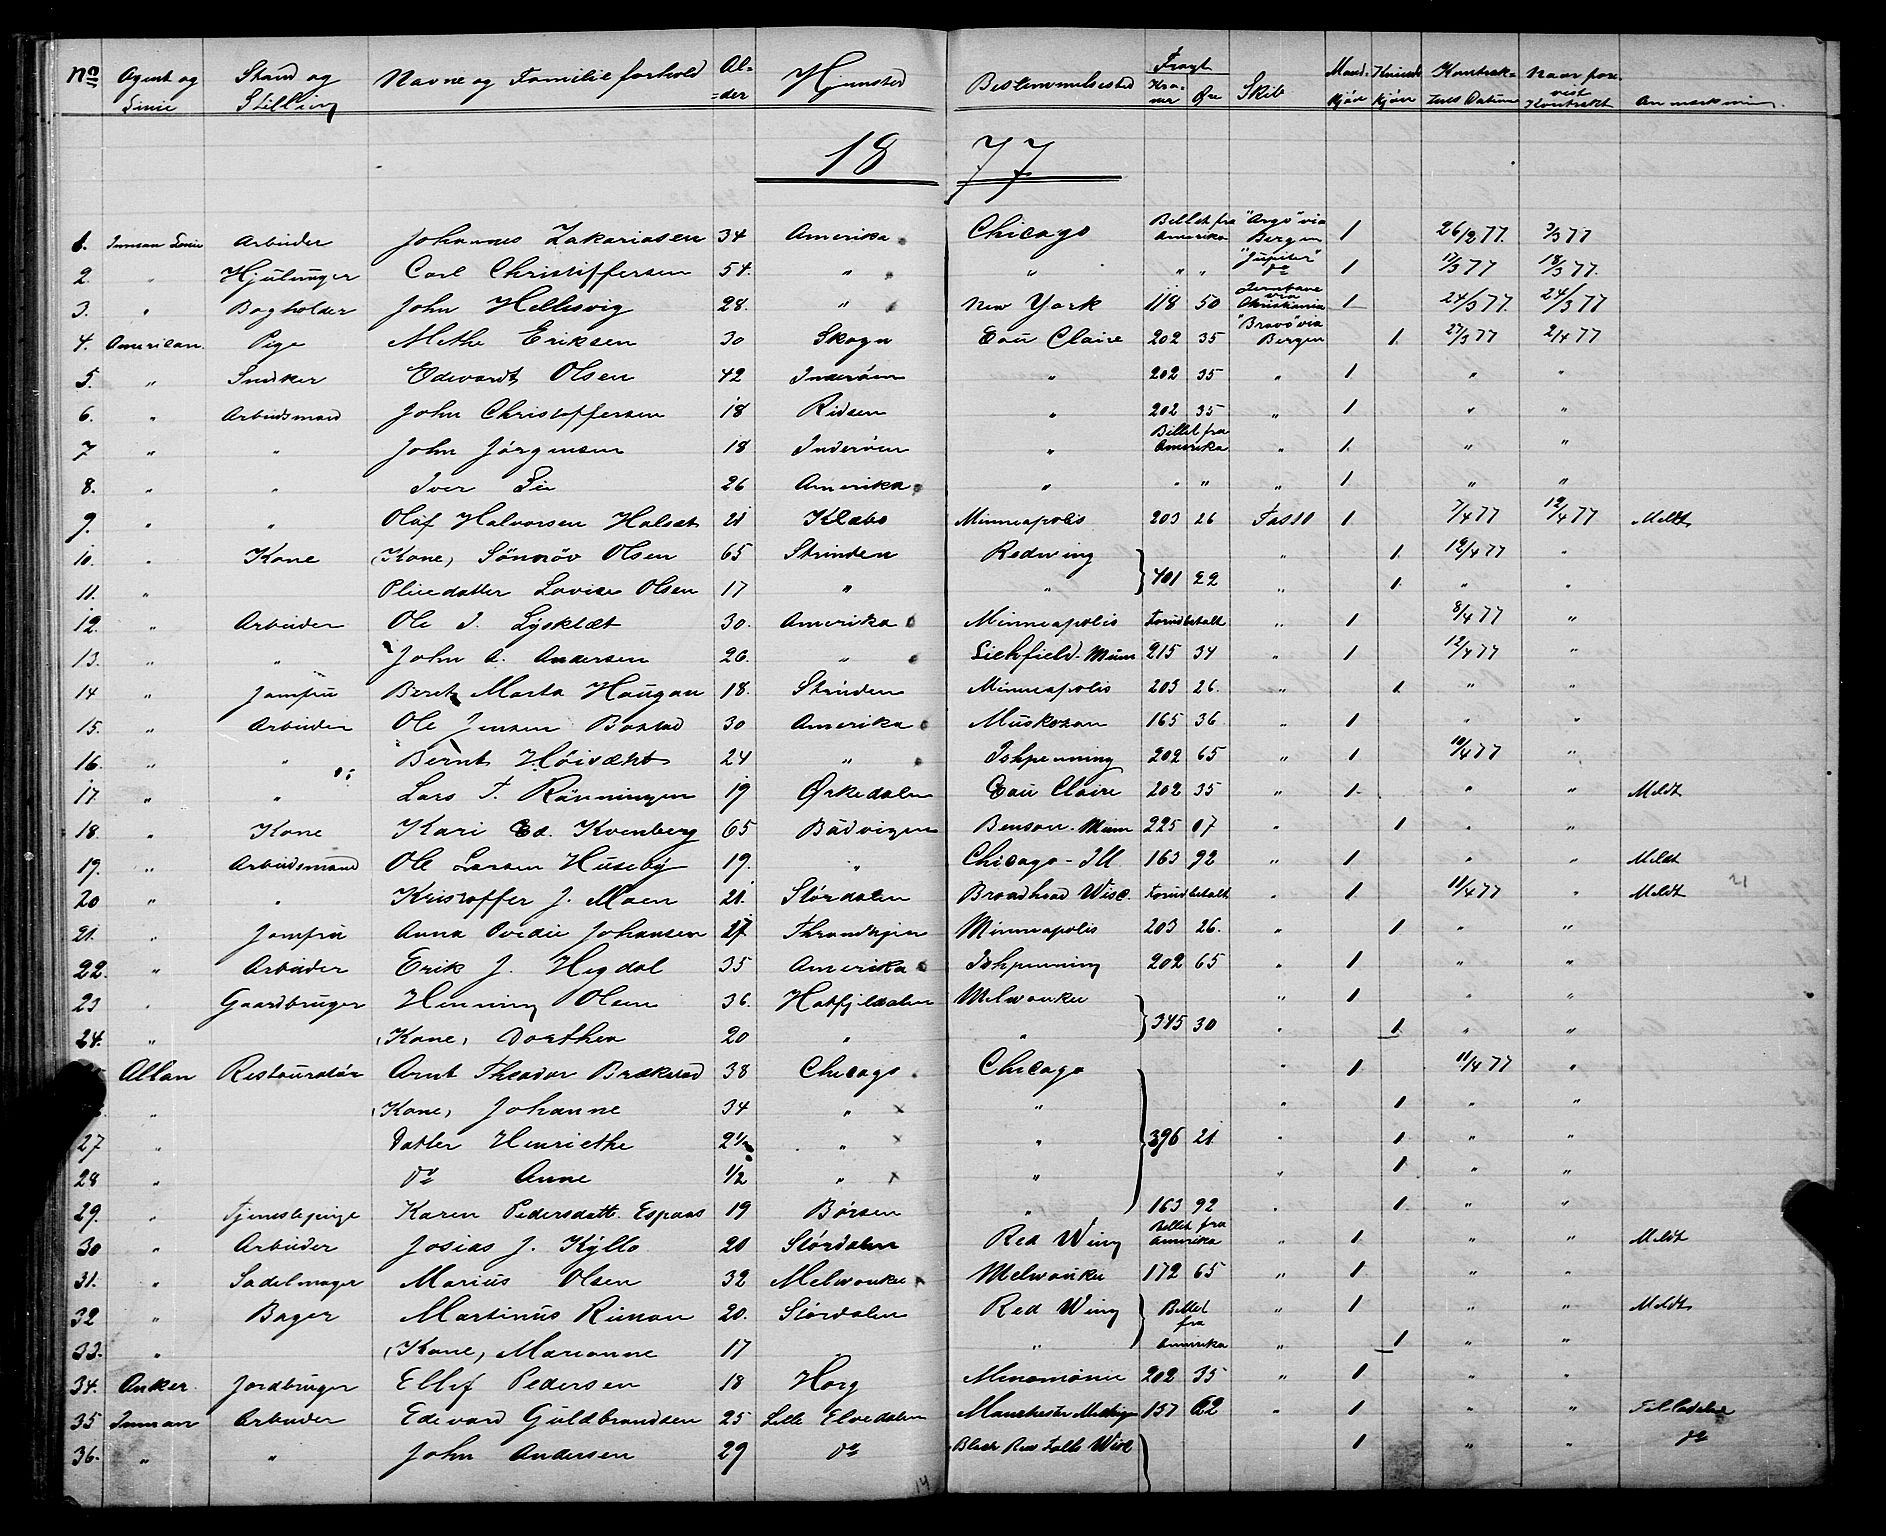 No Agent og Linie Stand og Stilling Navne og Familieforhold Alder Hjemsted Bestemmelsested Fragt Kroner Øre Skib Mandkjøn Kvindekjøn Kontraktens Datum Naar forevist Kontrakt Anmærkning.
1877
1. Inman Linie Arbeider Johannes Zakariasen 34 Amerika Chicago Billet fra Amerika "Argo" via Bergen 1 26/2 77. 3/3 77
2. " Carl Christiffersen 54. " " " " "Jupiter" do 1 17/3 77 18/3 77.
3. " Bogholder John Hellesvig 28. " New York 118 50 via Christiania 1 24/3 77. 24/3 77
4. American Pige Methe Eriksen 30 Skogn Eau Claire 202 35 "Bravo" via Bergen 1. 27/3 77 2/4 77
5. " Snedker Edevardt Olsen 42 Inderøen " 202 35 " 1 " "
6. " Arbeidsmand John Christoffersen 18 Ridsen " 202 35 " 1 " "
7 " " John Jørgensen 18 Inderøen " Billet fra Amerika " 1. " "
8. " " Iver Lie 26 Amerika " " " " 1 " "
9. " " Olaf Halvorsen Halset 21 Klæbo Minneapolis 203 26 Tasso 1 7/4 77 12/4 77 Meldt
10. " Kone (Kone) Sønnøv Olsen 65 Strinden Redwing " 1. 12/4 77 "
11. " Pleiedatter Lovise Olsen 17 " " 401 22 " 1. " "
12. " Arbeider Ole J. Lysklæt 30. Amerika Minneapolis Forudbetalt " 1 8/4 77 "
13. " " John A. Andersen 26. " Lichfield Minn 215 34 " 1 12/4 77 "
14 " Jomfru Beret Marta Haugan 18. Strinden Minneapolis 203 26. " 1. " "
15. " Arbeider Ole Jensen Bostad 30 Amerika Muskozan 165 36 " 1 " "
16. " " Bernt 24 " Ishpenning 202 65 " 1 10/4 77 "
17. " " Lars T. Rønningen 19 Ørkedalen Eau Claire 202 35 " 1. " " Meldt
18. " Kone Kari Ed. Kvenberg 65 Bødvigen Benson Minn 225 07 " 1 " "
19. " Arbeidsmand Ole Larsen Huseby 19. " Chicago - Ill 163 92 " 1 " " Meldt
20 " " Kristoffer J. Moen 21. Størdalen Brondhead Wisc. Forudbetalt " 1 11/4 77 " Meldt 21
21. " Jomfru Anna Ovedie Johansen 27 Throndhjem Minneapolis 203 26. " 1 " "
22. " Arbeider Erik J. Hegdal 35 Amerika Ishpenning 202 65 " 1 " "
23 " Gaardbruger Henning Olsen 36. Hatfjeldalen Melwaukee " 1 " "
24. " (Kone) Dorthea 20 " " 345 30 " 1. " "
Allan Restauratør Arnt Theodor Brækstad 38 Chicago Chicago " 1 11/4 77 "
" (Kone) Johanne 34 " " " 1 " "
27 " Datter Henriethe 2 1/2 " " 396 21. " 1 " "
28 " do Anne 1/2 " " " 1 " "
29. " Tjenestepige Karen Pedersdatt. Espaas 19 Børsen " 163 92 " 1. " "
30 " Arbeider Josias J. Kyllo 20 Størdalen Red Wing Billet fra Amerika " 1. " " Meldt
31. " Sadelmager Marius Olsen 32 Melwaukee Melwaukee 172 65 " 1 " "
32 " Bager Martinus Riman 20. Størdalen Red Wing Billet fra Amerika " 1 " " Meldt
33. " (Kone) Marianne 17 " " " 1 " "
34. Anker Jordbruger Ellef Pedersen 18 Horg Minomonie 202 35 " 1 " "
35 Inman Arbeider Edevard Guldbrandsen 25 Lille Elvedalen Manchester Michigan 157 62 " 1 " " Tilladelse
36. " " John Andersen 29 do Black River Falls Wisc 1 " " do
14